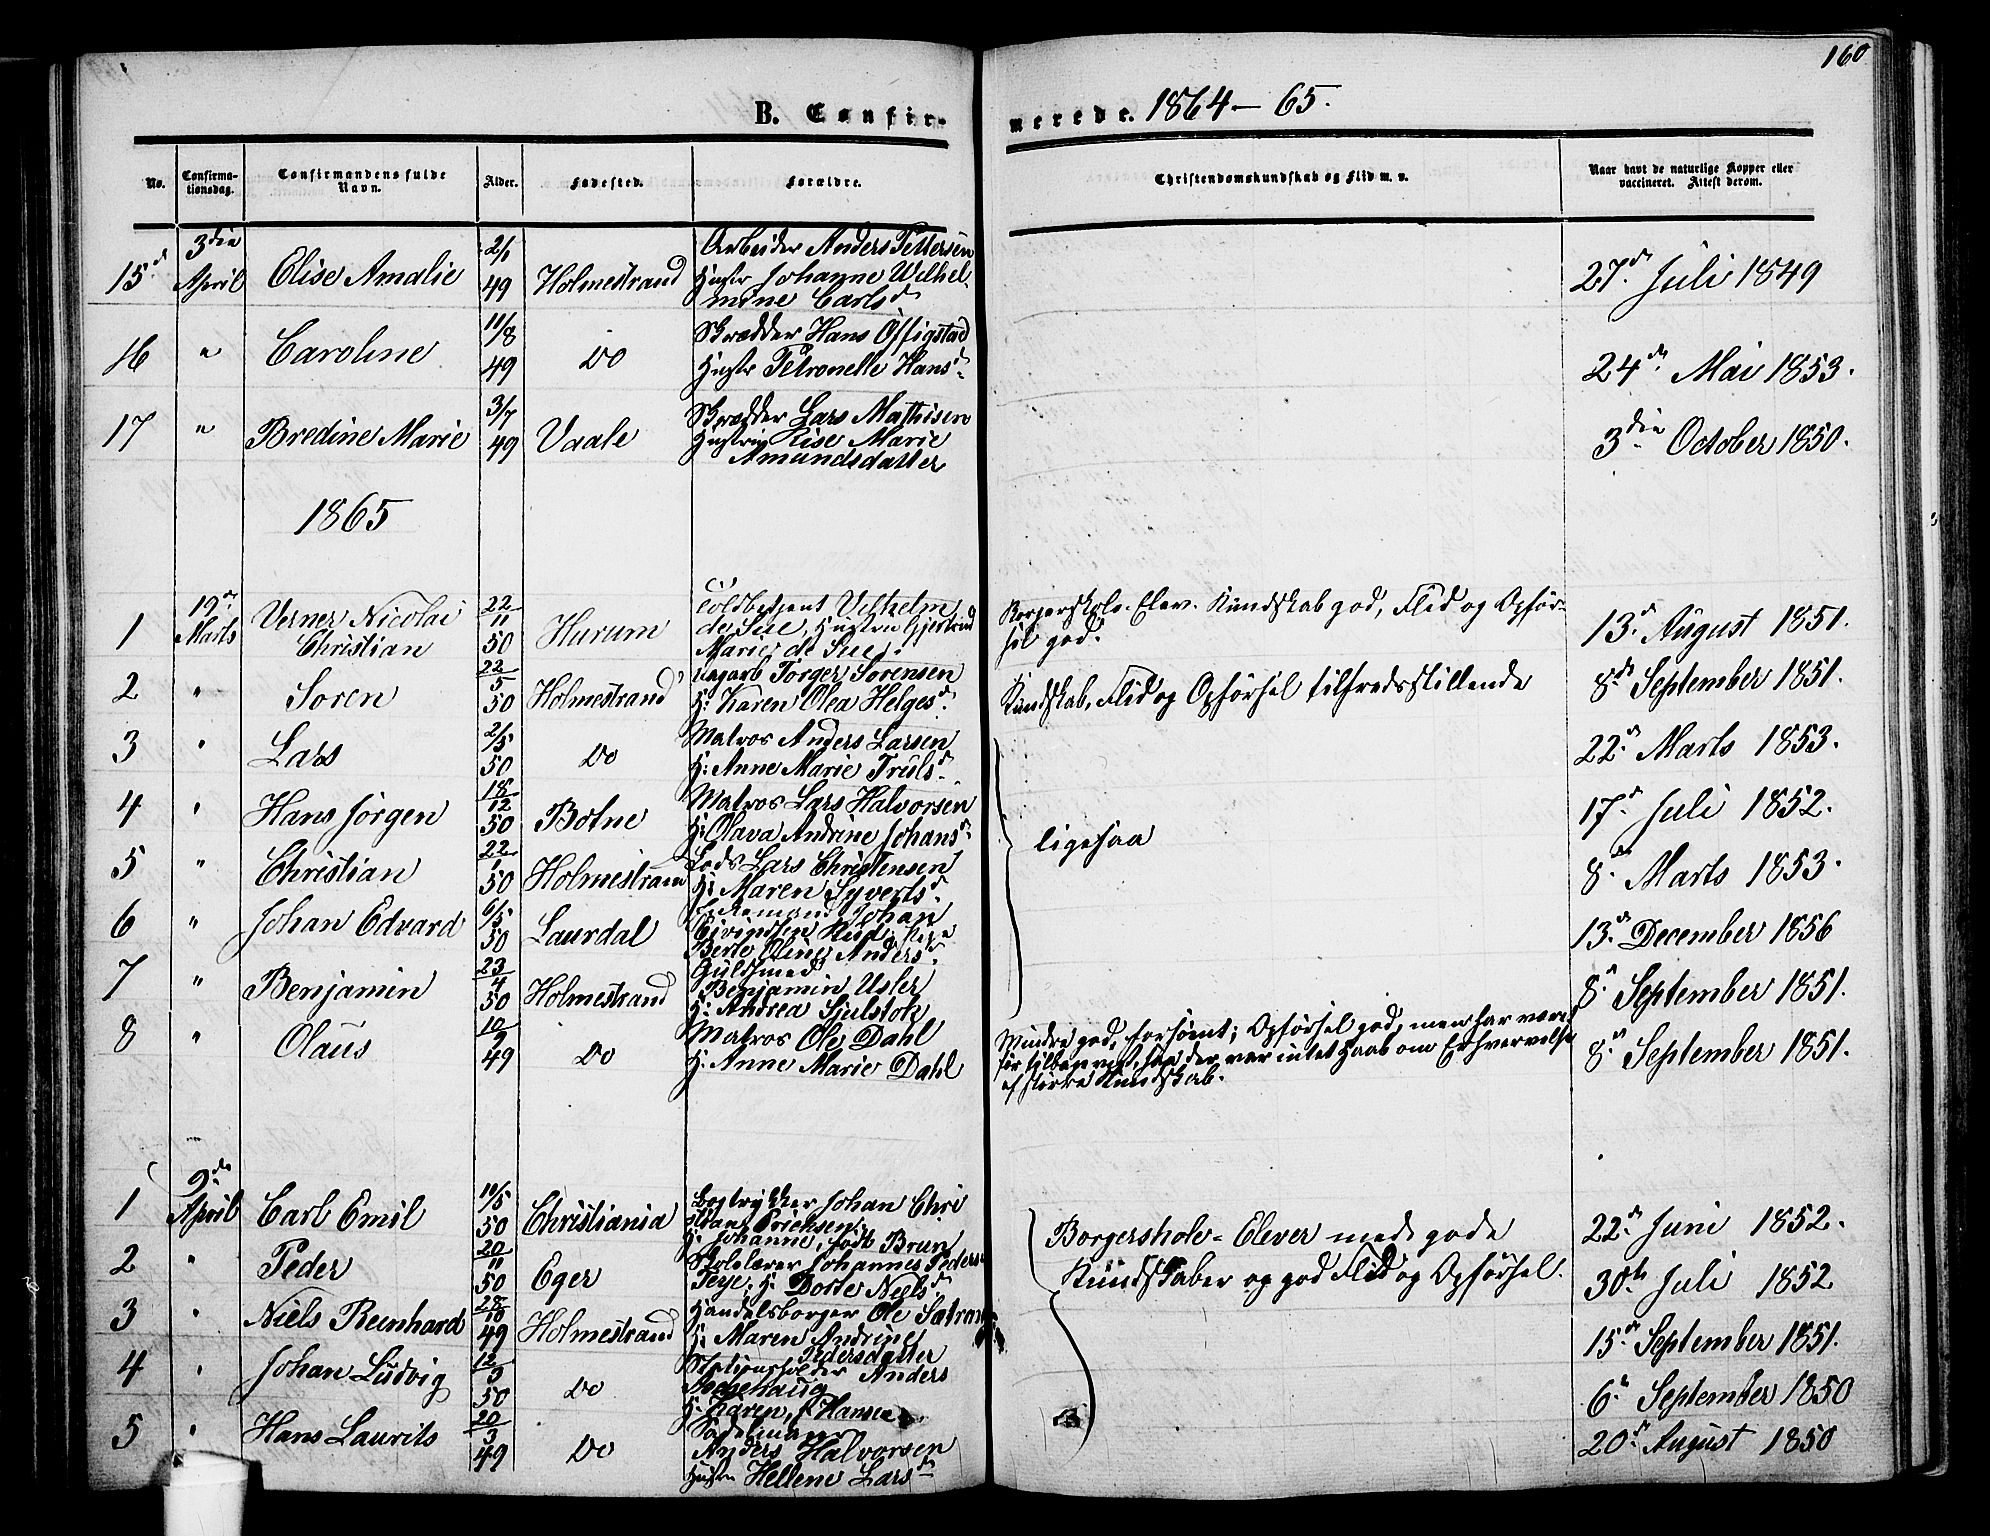 160
B. Confirmerede. 1864 – 65.
No. Confirmationsdag. Confirmandens fulde Navn. Alder. Fødested. Forældre. Christendomskundskab og Flid m. v. Naar havt de naturlige Kopper eller vaccineret. Attest derom.
15 3die April Elise Amalie 2/1 49 Holmestrand Arbeider Anders Pettersen
Hustr Johanne Wilhel-
mine Carlsd 27d Juli 1849
16 " Caroline 11/8 49 Do Skrædder Hans Offigstad
Hustr Petronelle Hansd. 24d. Mai 1853.
17 " Bredine Marie 3/7 49 Vaale Skrædder Lars Mathisen
Hustru Lise Marie
Amundsdatter 3die October 1850.
1865
1 19d. Marts Verner Nicolai
Christian 22/11 50 Hurum Toldbetjent Vilhelm
de Sue, Hustru Gjertrud
Marie de Sue. Borgerskole-Elev. Kundskab god, Flid og Opfør-
sel god. 13d. August 1851.
2 " Soren 22/5 50 Holmestrand Torger Sorensen
H: Karen Olea Helgesd. Kundskab, Flid og Opførsel tilfredsstillende 8d. September 1851.
3 " Lars 2/5 50 Do Matros Anders Larsen
H: Anne Marie Trulsd. 22d. Marts 1853.
4 " Hans Jørgen 18/12 50 Botne Matros Lars Halvorsen
H: Olava Andrine Johansd. ligesaa 17d Juli 1852.
5 " Christian 22/1 50 Holmestrand Lods Lars Christensen
H: Maren Syvertsd. 8d. Marts 1853.
6 " Johan Edvard 6/5 50 Laurdal Johan
Eivindsen
Berte Oline Andersd. 13d. December 1856
7 " Benjamin 23/4 50 Holmestrand Guldsmed
Benjamin Usler
H: Andrea Sjulstok 8d. September 1851.
8 " Olaus 10/9 49 Do Matros Ole Dahl
H: Anne Marie Dahl Mindre god, forsømt; Opførsel god, men har været
før tilbageviist, saa der var intet Haab om Erhvervelse
af større Kundskab. 8d. September 1851.
1 9de April Carl Emil 11/5 50 Christiania Bogtrykker Johan Chri
stian Erichsen
H. Johanne, født Brun Borgerskole-Elever med gode 22d. Juni 1852.
2 " Peder 20/11 50 Eger Skolelærer Johannes Peders
Teye; H. Dorte Nielsd. Kundskaber og god Flid og Opførsel. 30te Juli 1852
3 " Niels Reinhard 28/10 49 Holmestrand Handelsborger Ole Sætrang
H. Maren Andrine
Pedersdatter 15d. September 1851.
4 " Johan Ludvig 12/9 50 Do Stationsholder Anders
H. Karen, f. Hansen 6d. September 1850
5 " Hans Laurits 20/3 49 Do Sadelmager
Anders Halvorsen
Hustru Hellene Larsd 20d August 1850